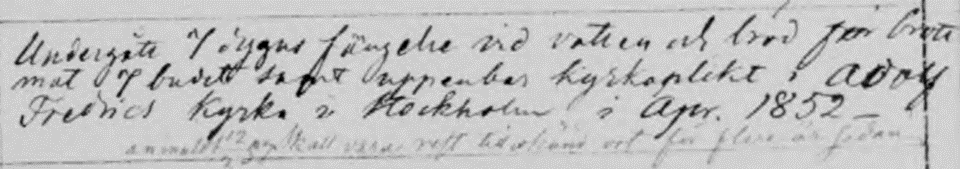 Undergått 7 dygns fängelse vid vatten och bröd för brott
mot 7 budet samt uppenbar kyrkoplikt i Adolf
Fredrics Kyrka i Stockholm i Apr. 1852 –
anmäldt 12 skall vara för flere år sedan